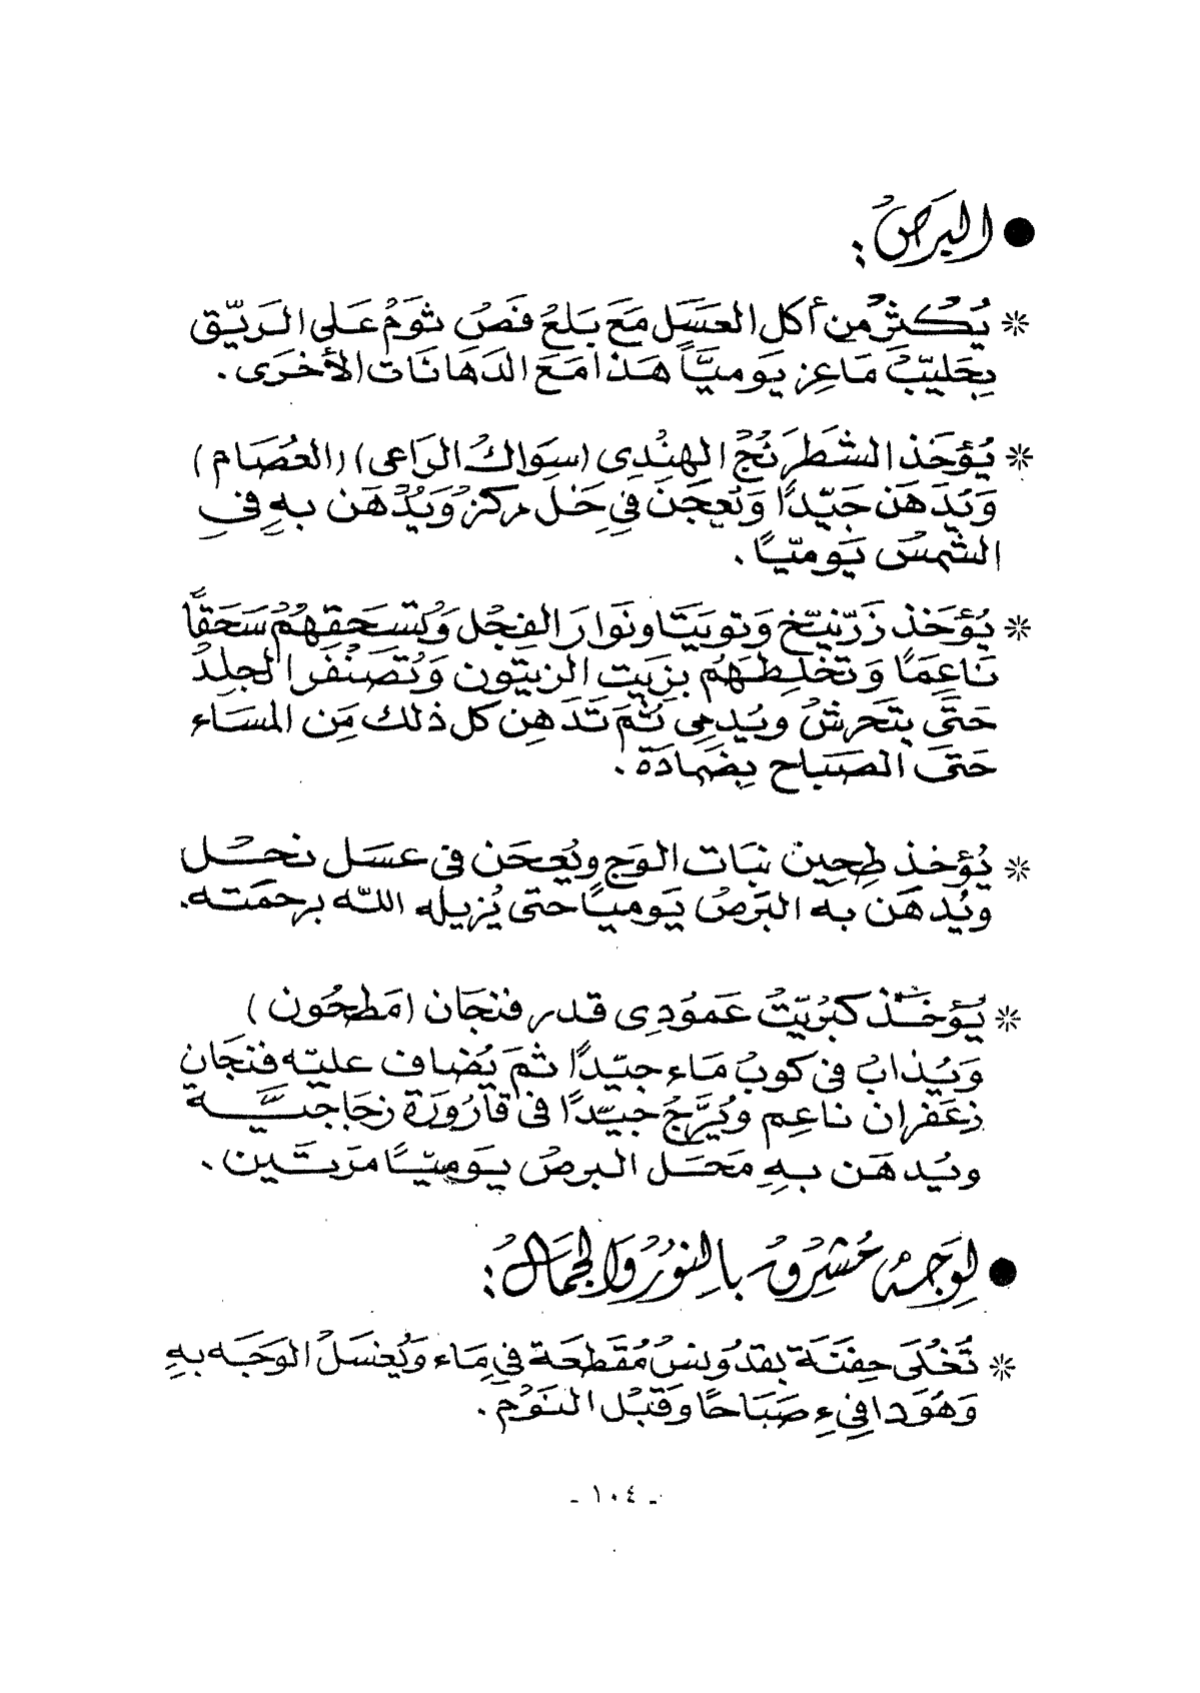 ● البرص :
* يُكثر من أكل العسَل مَعَ بَلعُ فَصُ ثومْ عَلى الريّق
بحَليّبْ مَاعِز يَوميّاً هَذا مَعَ الدهَانَات الأخرَى .
* يُؤخَذ الشطَرَنُجْ الهِنْدِى (سِوَاكُ الرَاعى) (العُصَام)
وَيُدَهَن جَيّدًا وَيُعجَن فِي خَل مركزْ وَيُدْهَن بهِ في
الشمسْ يَوميّاً .
* يُؤخَذ زَرّنيّخ وَتوبيَتَا ونَوارَ الفِجْل وَتسَحقهُمْ سَحَقاً
نَاعِمَا وَتخلِطهَمُ بزَيت الزيتون وَتُصَنْفَر الجلِدُ
حَتىَ يتَحرشْ ويُدمِى ثُمَ تَدَهِن كل ذلك مِن المسَاء
حَتىَ الصَبَاح بِضَمادَة .
* يُؤخذ طِحِين نبَات الوَج ويُعجَن فى عسَل نحْل
ويُدهَن به البَرصُ يَوميًا حتى يُزيله الله برحمَته.
* يُؤخَذ كبرُيّتْ عَمَوُدِى قدر فنجَان (مَطحُون)
وَيُذابُ فى كوبُ مَاء جيّدًا ثمَ يُضاف عليّه فنجَان
زعَفران ناعِم ويُرَّجُ جيّدًا فى قارُورَة زجَاجيَّة
ويُدهَن بهِ مَحَل البرصُ يَوميّاً مرَتَين .
● لِوَجهُ مُشرِقُ بالنوُرُ وَالجمَالُ :
* تُغْلىَ حِفنَة بقدُونسُ مُقَطعَة في مَاء وَيُغسَلْ الوَجَه بهِ
وَهُوَ دافِىءِ صَبَاحًا وَقَبْل النَوُمْ .
- ١٠٤ -